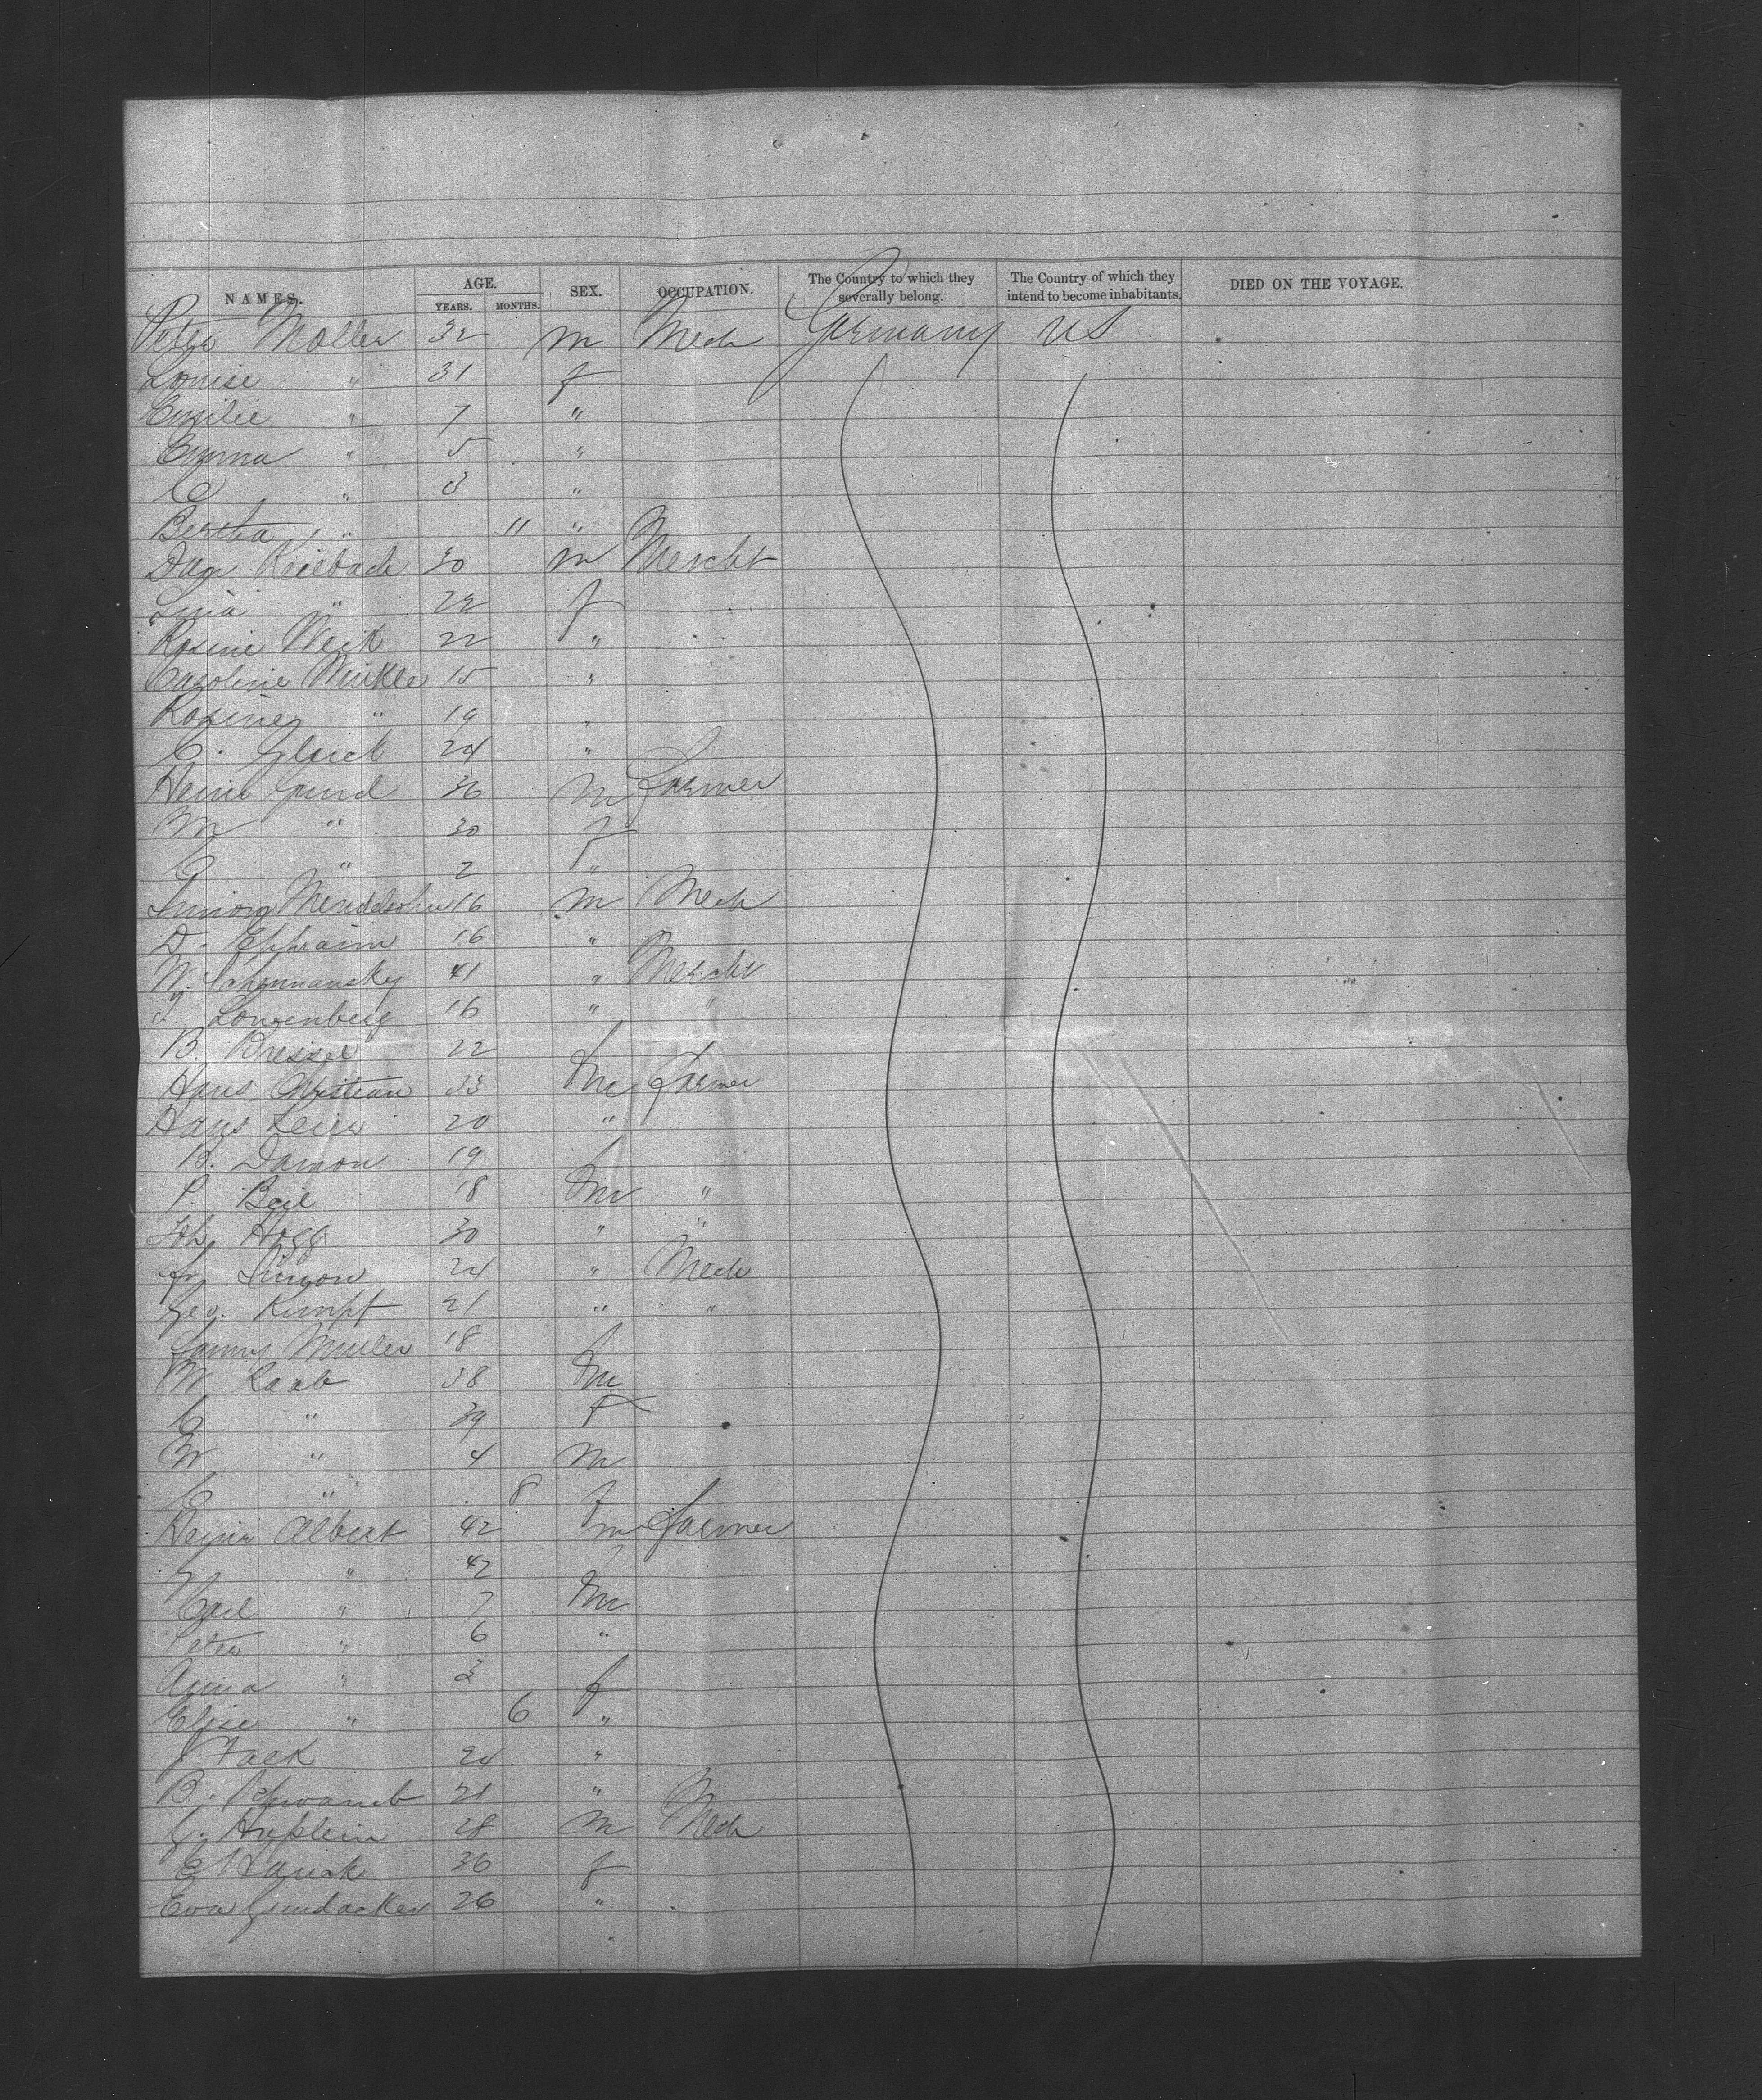 NAMES. AGE. YEARS. MONTHS. SEX. OCCUPATION. The Country to which they severally belong. The Country of which they intend to become inhabitants. DIED ON THE VOYAGE.
Peter Moller 32 m Mech Germany US
Louise " 31 f
Emilie " 7 "
Emma " 5 "
C " 3 "
Bertha " 11 "
Dan 30 m Mercht
Lina " 22 f
Rosine Weik 22 "
Caroline Winkle 15 "
Rosine " 19 "
C. Glück 24 "
Heinr Gund 36 m Farmer
M " 30 f
C " 2 "
Simon Mendelsohn 16 m Mech
D. Ephraim 16 "
W. 41 " Mercht
J. Lowenberg 16 " "
B. Dressel 22 f
Hans Christian 33 m Farmer
Hans 20 "
B. Damon 19 f
P. Beil 18 m "
Joh. Hogg 30 " "
Fr Simon 24 " Mech
Geo. Kempf 21 " "
Fanny Muller 18 f
W Raab 38 m
C " 39 f
W " 4 m
C " 8 f
Heinr Albert 42 m Farmer
" 42 f
Carl " 7 m
Peter " 6 "
Anna " 3 f
Elise " 6 "
J Falk 24 "
B. Schwamb 21 "
G. Haftlein 28 m Mech
E 36 f
Eva Gundacker 26 "